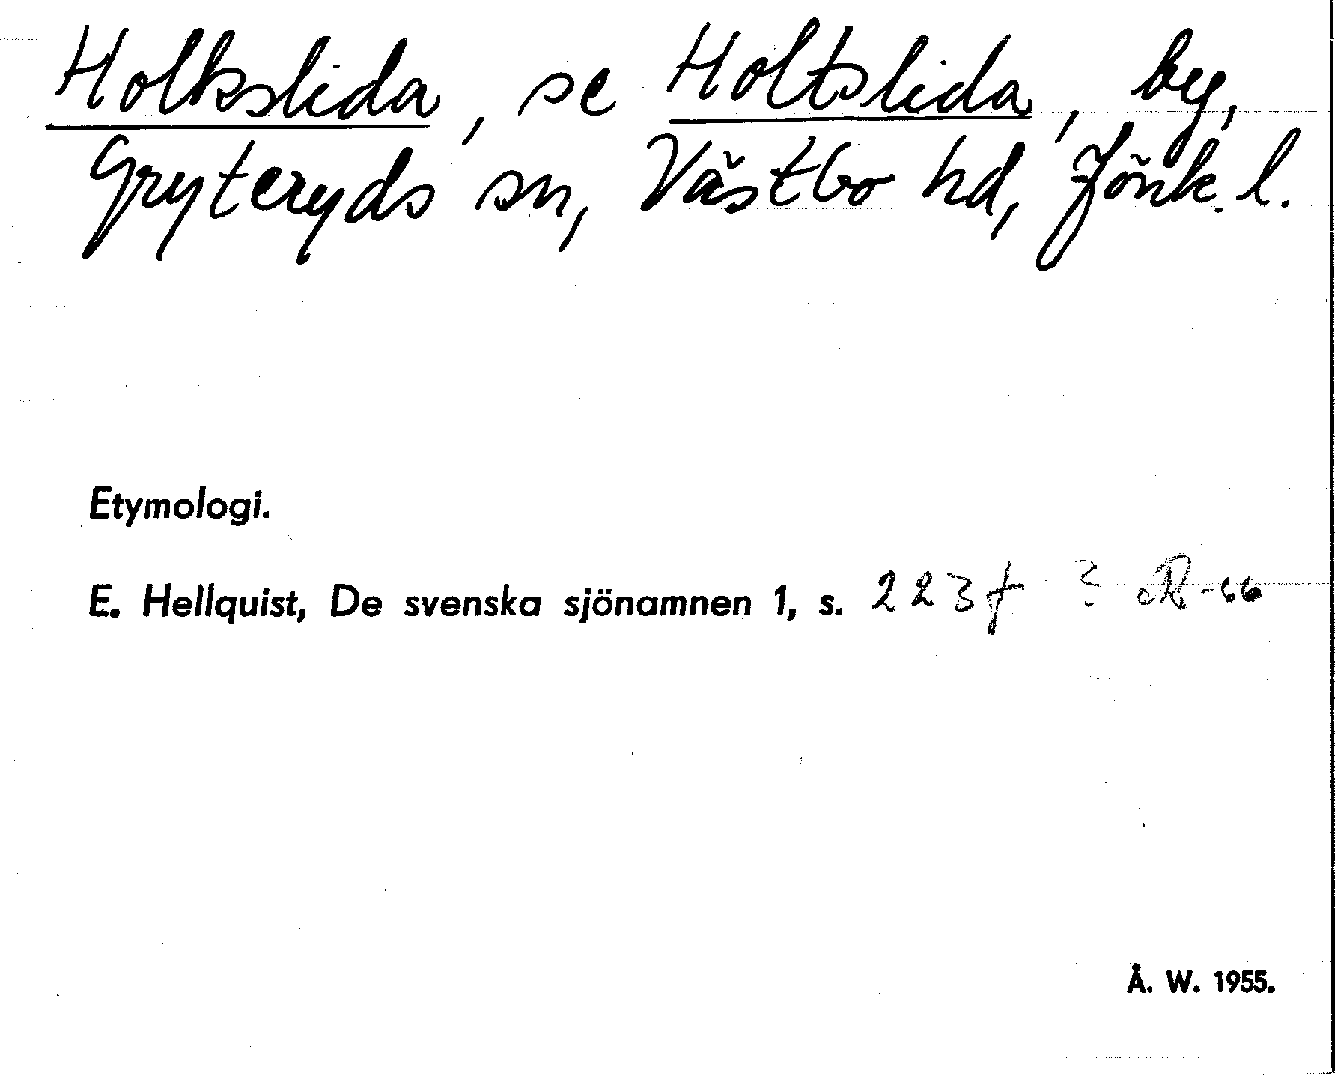 Holkslida, se Holtslida, by,
Gryteryds sn, Västbo hd, Jönk. l.
Etymologi.
E. Hellquist, De svenska sjönamnen 1, s. 223 f ?
Å. W. 1955.